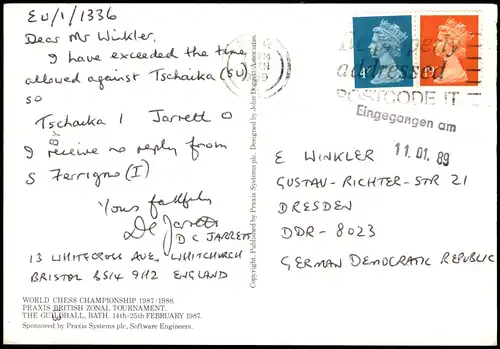 EU/1/1336
Dear Mr Winkler,
I have exceeded the time
allowed against Tschaika (SU)
so
Tschaika 1 Jarrett 0
I receive no reply from
S Ferrigno (I)
Yours faithfully
D C Jarrett
D C JARRETT
13 WHITECROSS AVE, WHITCHURCH
BRISTOL BS14 9HZ ENGLAND
WORLD CHESS CHAMPIONSHIP 1987/1988.
PRAXIS BRITISH ZONAL TOURNAMENT.
THE GUILDHALL, BATH. 14th-25th FEBRUARY 1987.
Sponsored by Praxis Systems plc, Software Engineers.
Copyright. Published by Praxis Systems plc. Designed by John Dugger Associates.
properly
addressed
POSTCODE IT
Eingegangen am
11. 01. 89
E WINKLER
GUSTAV-RICHTER-STR 21
DRESDEN
DDR-8023
GERMAN DEMOCRATIC REPUBLIC